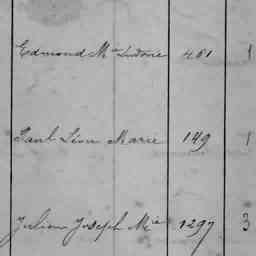 Edmond Mie Ludovic 461 1
Paul Léon Marie 149 1
Julien Joseph Mie 1297 3